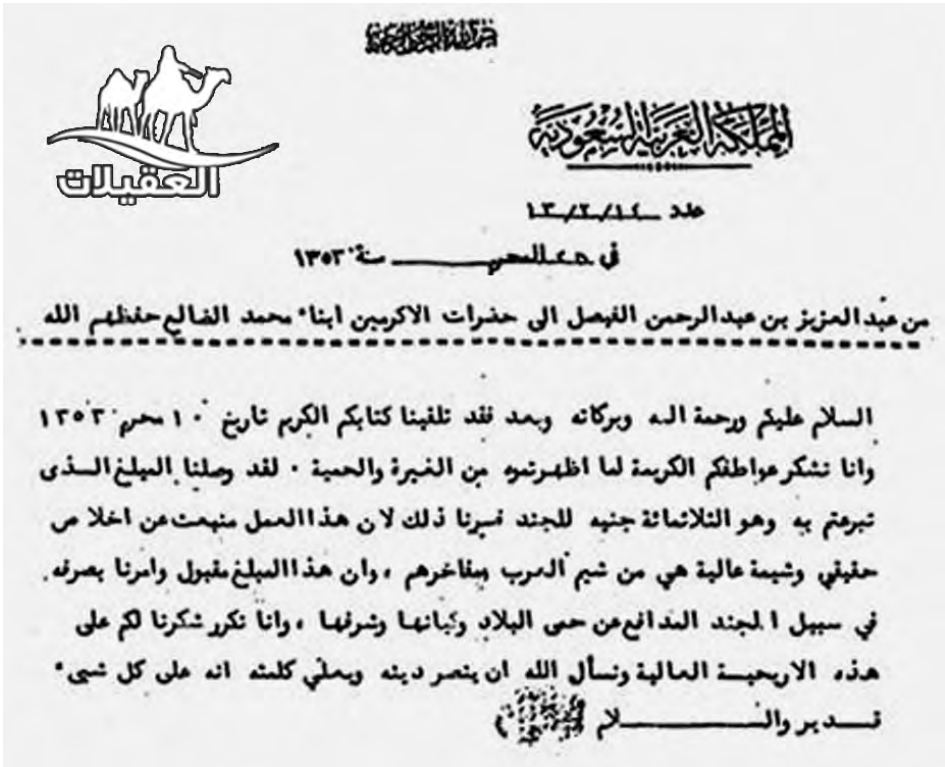 بسم الله الرحمن الرحيم
العقيلات
المملكة العربية السعودية
عدد ١٣/٢/١٤
في ٢٥ المحرم سنة ١٣٥٣
من عبد العزيز بن عبد الرحمن الفيصل الى حضرات الاكرمين ابناء محمد الضالع حفظهم الله
السلام عليكم ورحمة الله وبركاته وبعد فقد تلقينا كتابكم الكريم تاريخ ١٠ محرم ١٣٥٣
وانا نشكر عواطفكم الكريمة لما اظهرتموه من الغيرة والحمية ٠ لقد وصلنا المبلغ الذى
تبرعتم به وهو الثلاثمائة جنيه للجند فسرنا ذلك لان هذا العمل منبعث عن اخلاص
حقيقي وشيمة عالية هي من شيم العرب ومفاخرهم ، وان هذا المبلغ مقبول وامرنا بصرفه
في سبيل الجند المدافع عن حمى البلاد وكيانها وشرفها ، وانا نكرر شكرنا لكم على
هذه الاريحية العالية ونسأل الله ان ينصر دينه ويعلي كلمته انه على كل شيء
قدير والسلام